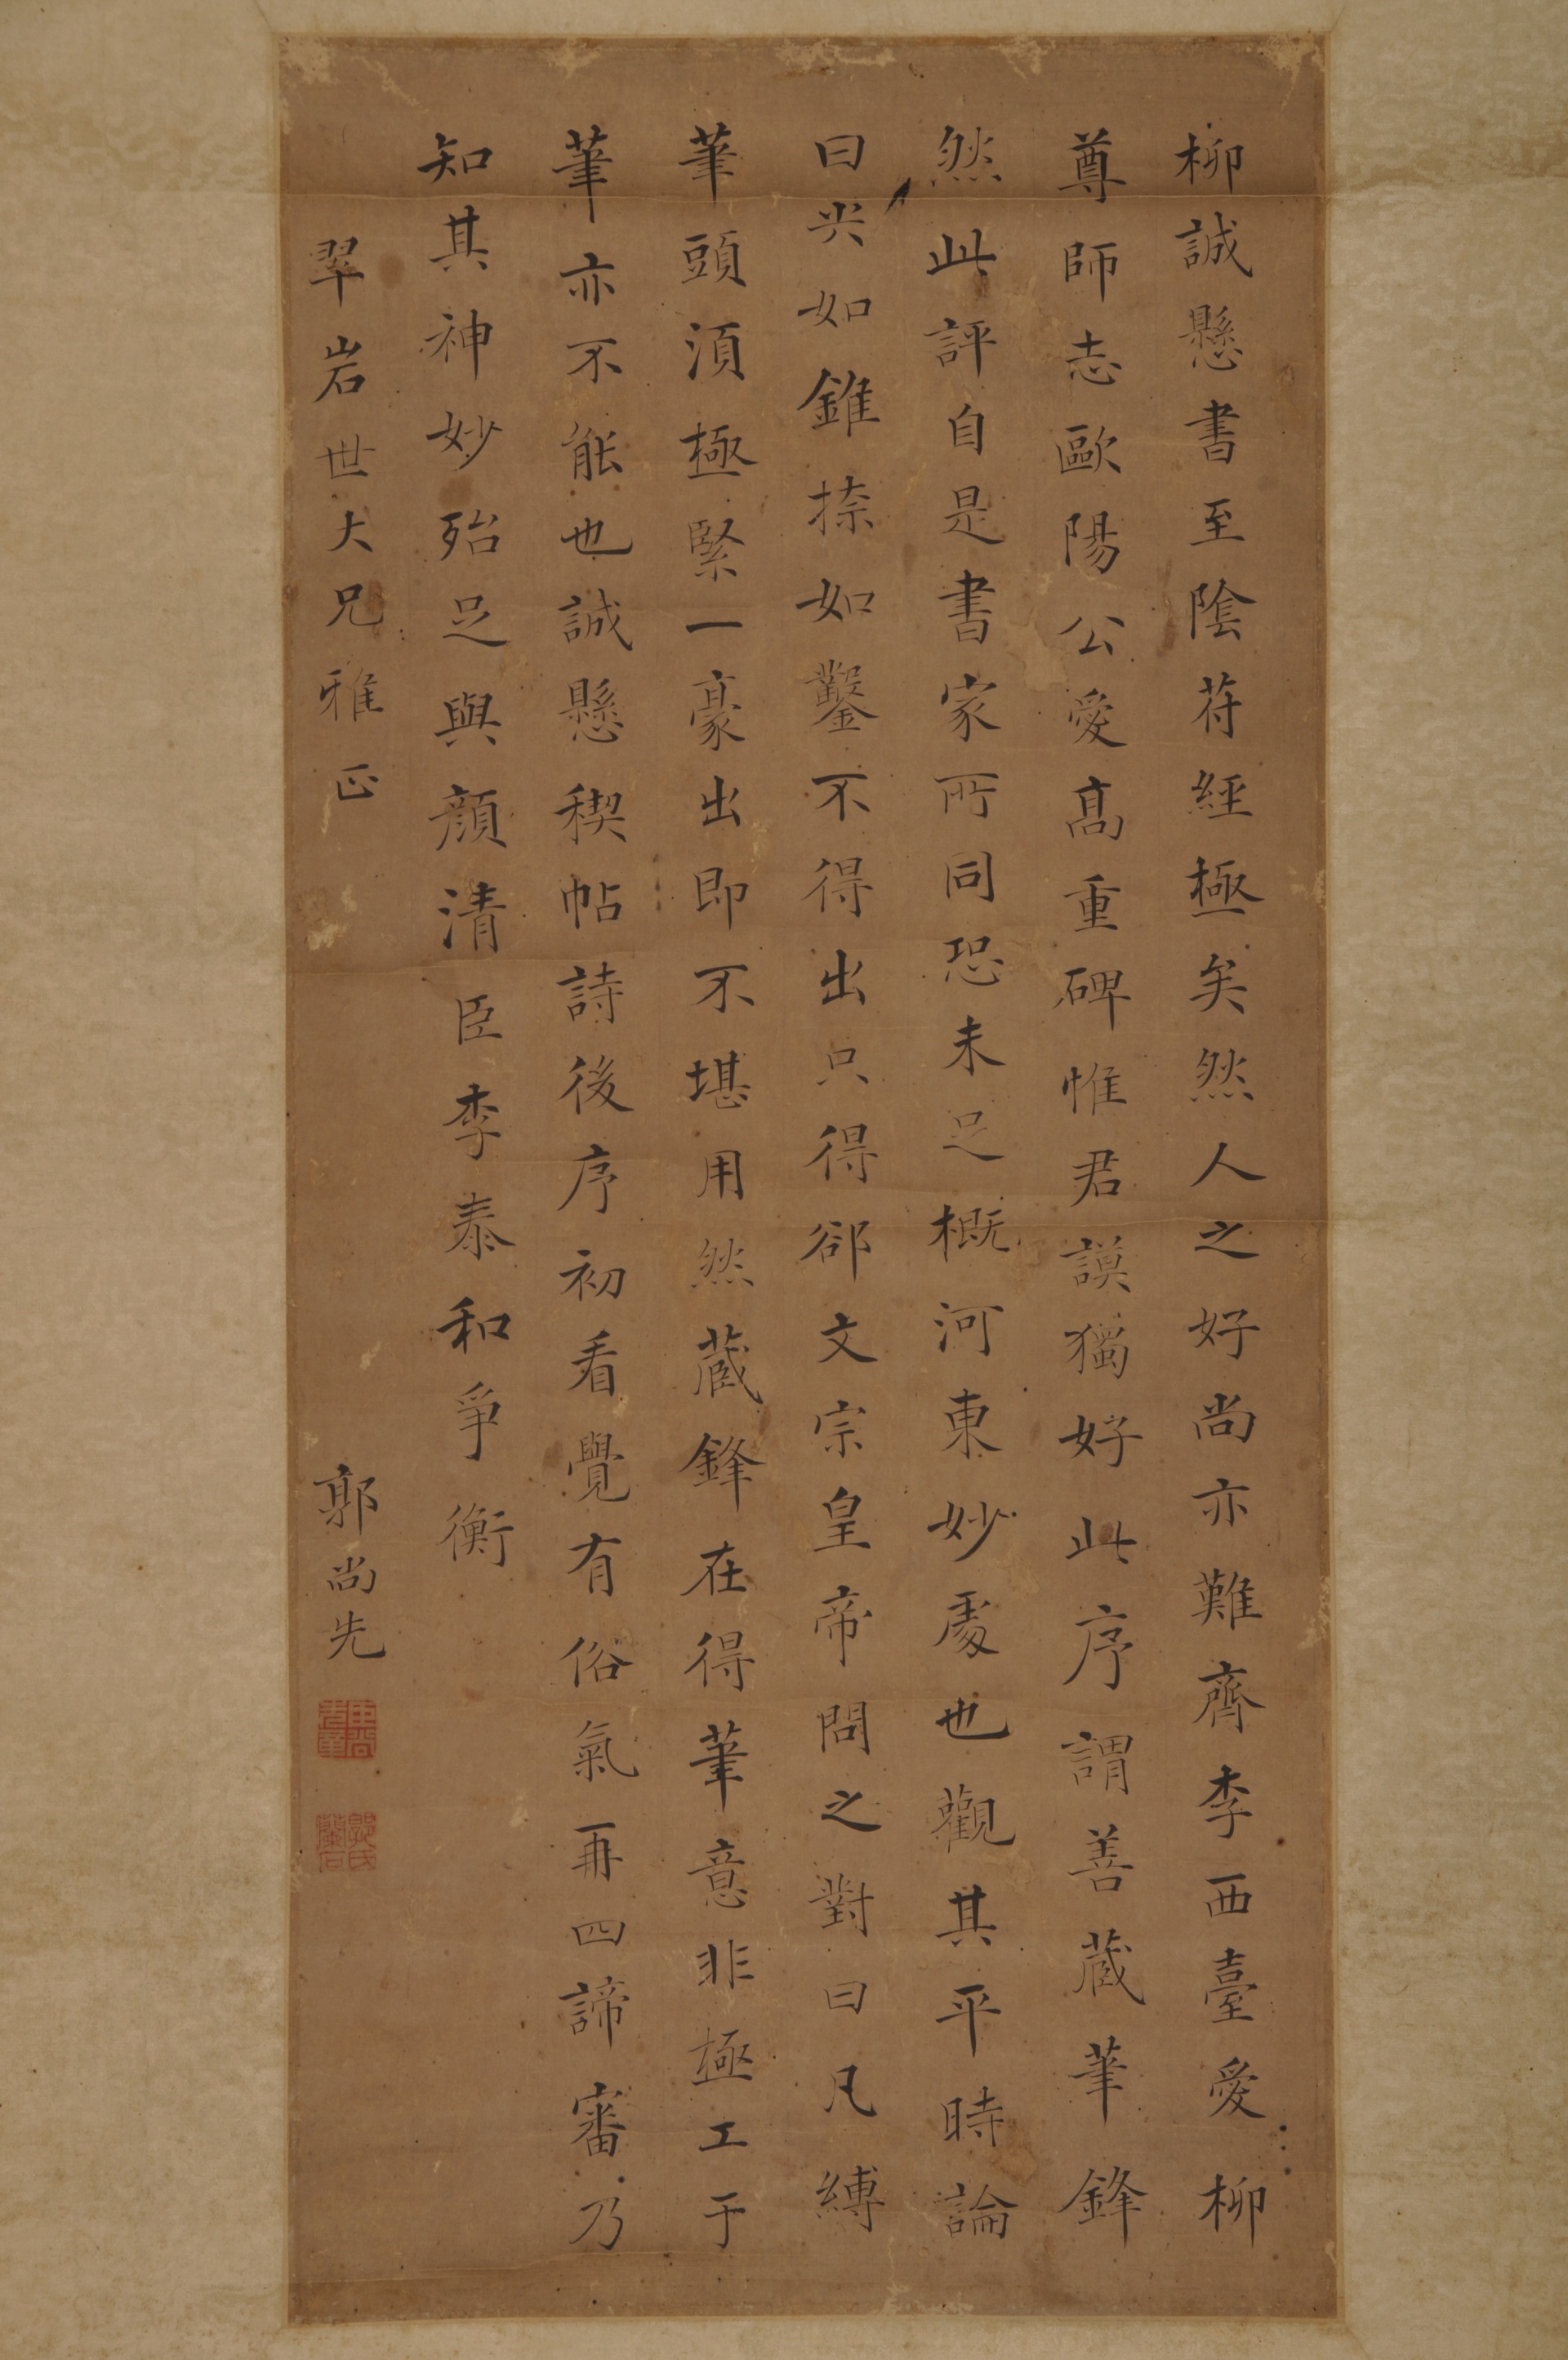 柳誠懸書至陰苻經極矣然人之好尚亦難齊李西臺愛柳
尊師志歐陽公愛髙重碑惟君謨獨好此序謂善蔵筆鋒
然此評自是書家所同恐未足概河東妙處也觀其平時論
曰尖如錐捺如鑿不得出只得郤文宗皇帝問之對曰凡縛
筆頭湏極緊一豪出即不堪用然蔵鋒在得筆意非極工于
筆亦不能也誠懸稧帖詩後序初看覺有俗氣再四諦審乃
知其神妙殆足與顔清臣李泰和爭衡
翠岩世大兄雅正
郭尚先
郭氏蘭石